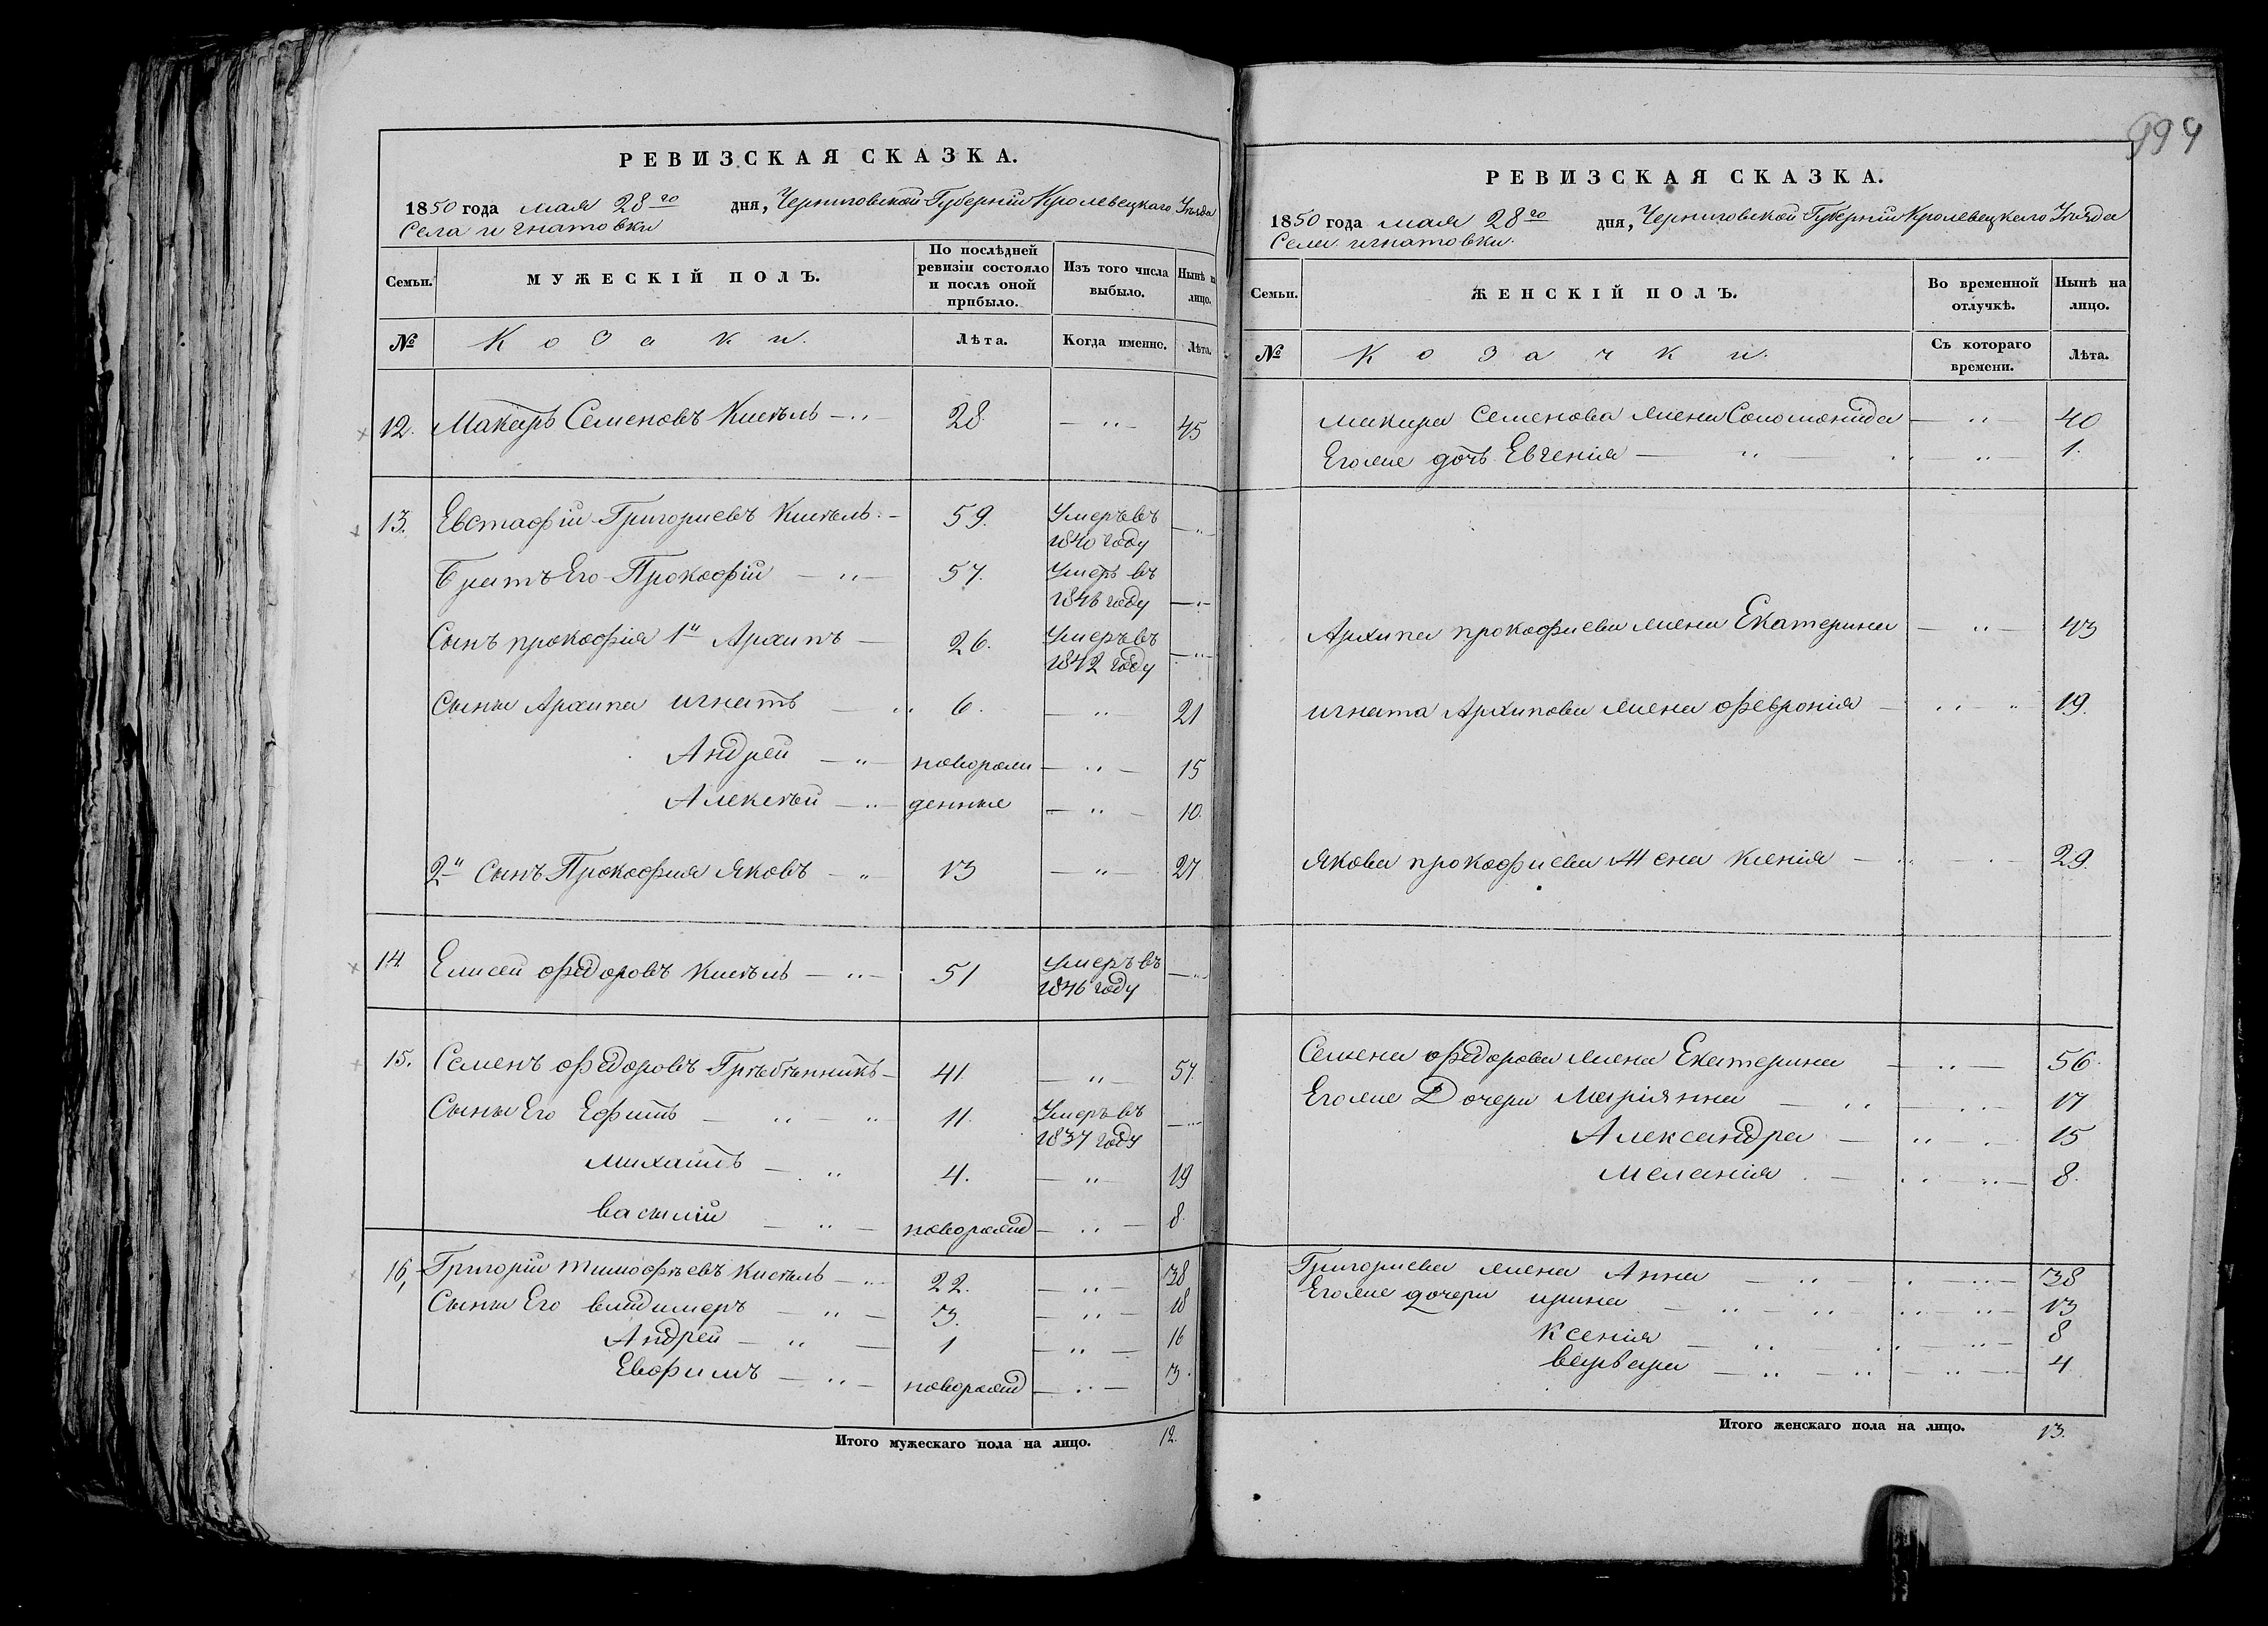 РЕВИЗСКАЯ СКАЗКА.
1850 года мая 28го дня, Черниговской Губерніи Кролевецкаго Уѣзда
Села игнатовки
Семьи.
МУЖЕСКІЙ ПОЛЪ.
По послѣдней ревизіи состояло и послѣ оной прибыло.
Изъ того числа выбыло.
Нынѣ на лицо.
№
Козаки.
Лѣта.
Когда именно.
Лѣта.
12. Макаръ Семеновъ Кисѣль — 28. — 45
13. Евстафій Григориевъ Кисѣль. — 59. Умеръ въ 1840 году —
Братъ Его Прокофій — 57. Умеръ въ 1846 году —
Сынъ прокофія 1й Архипъ — 26. Умеръ въ 1842 году —
Сыны Архипа игнатъ — 6. — 21
Андрей — новорож — 15
Алексѣй — денные — 10.
2й Сынъ Прокофия Яковъ — 13 — 27
14 Елисей Федоровъ Кисѣль — 51 Умеръ въ 1846 году —
15. Семенъ Федоровъ Грѣбѣнникъ — 41. — 57.
Сыны Его Ефимъ — 11. Умеръ въ 1837 году —
михаилъ — 4. — 19
василій — новорожд — 8.
16, Григорій тимофѣевъ Кисѣль — 22. — 38
Сыны Его владимеръ — 3. — 18
Андрей — 1 — 16
Евфимъ — новорожд — 3.
Итого мужескаго пола на лицо. 12.
994
РЕВИЗСКАЯ СКАЗКА.
1850 года мая 28го дня, Черниговской Губерніи Кролевецкаго Уѣзда
Села игнатовки.
Семьи.
ЖЕНСКІЙ ПОЛЪ.
Во временной отлучкѣ.
Нынѣ на лицо.
№
Козачки.
Съ котораго времени.
Лѣта.
макара Семенова жена Соломонида — 40
Егоже дочь Евгенія — 1.
Архипа прокофиева жена Екатерина — 43
игната Архипова жена Февронія — 19.
Якова прокофиева Жена Ксенія — 29.
Семена Федорова жена Екатерина — 56.
Егоже Дочери Маріянна — 17
Александра — 15
Меланія — 8.
Григориева жена Анна — 38
Егоже дочери ирина — 13
Ксенія — 8
варвара — 4
Итого женскаго пола на лицо. 13.